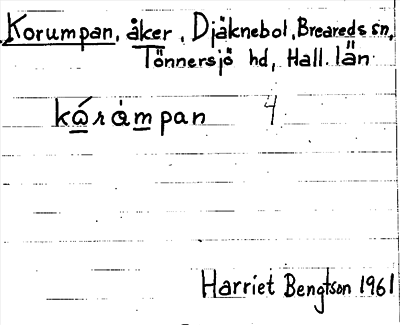 Korumpan, åker, Djäknebol, Breareds sn,
Tönnersjö hd, Hall. län.
kώràmpan 4
Harriet Bengtson 1961